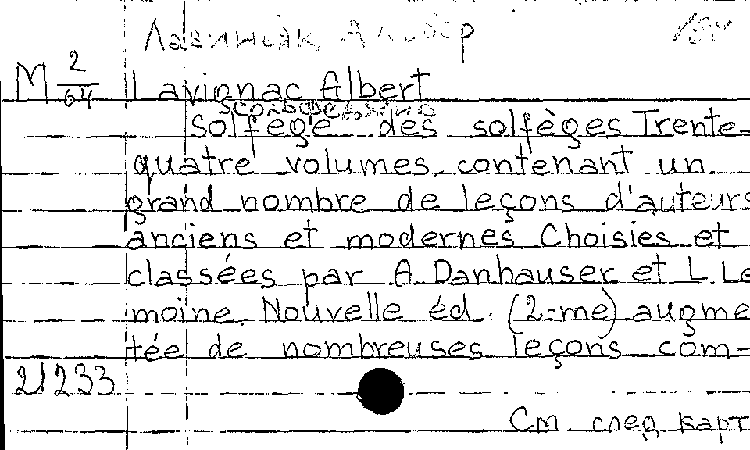 Лавиньяк Альбер
M 2/64 Lavignac Albert
Solfège des solfèges Trente-
quatre volumes, contenant un
grand nombre de leçons d'auteurs
anciens et modernes Choisies et
classées par A. Danhauser et L. Le
moine. Nouvelle éd. (2-me) augme
tée de nombreuses leçons com-
21233
См. след карт